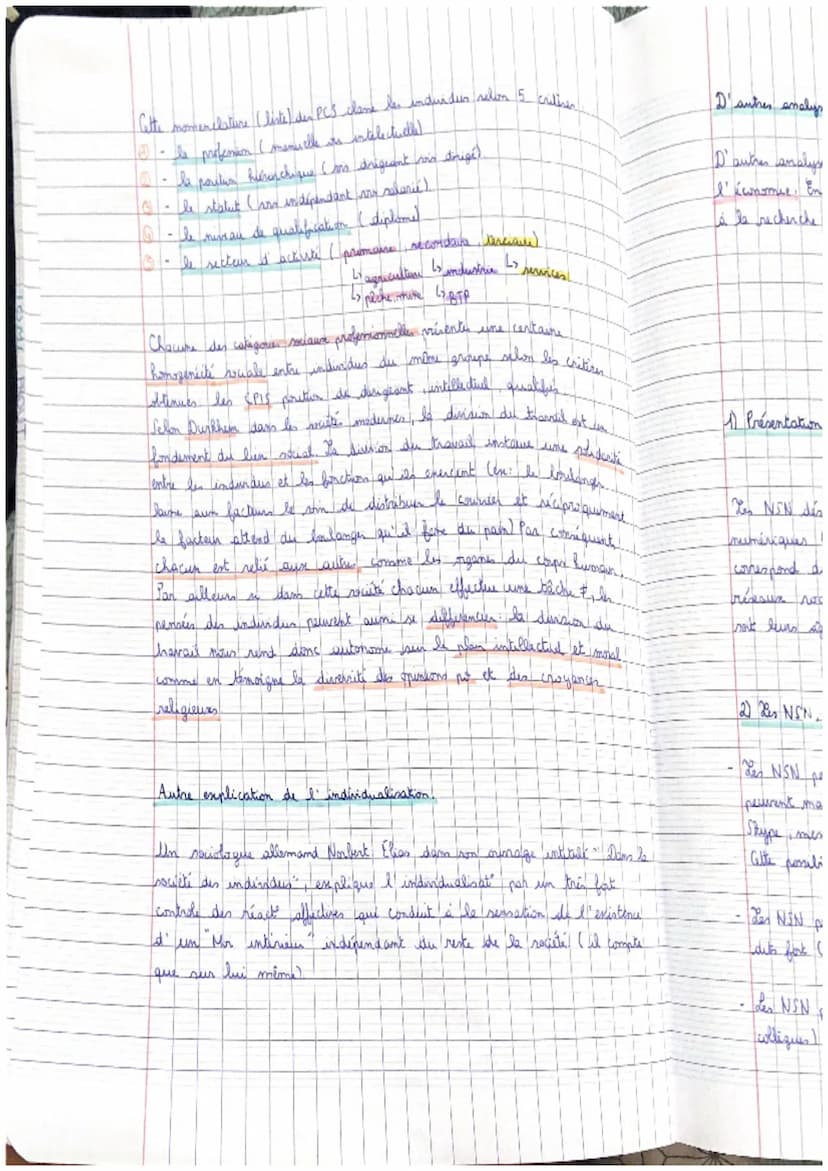 Cette nomenclature (liste) des PCS classe les individus selon 5 critères
- la profession (manuelle ou intelectuelle)
- la position hiérarchique (ns dirigeant ns dirigé)
- le statut (ns indépendant ns salarié)
- le niveau de qualification (diplôme)
- le secteur d'activité (primaire, secondaire, terciaire)
↳ agriculture ↳ industrie ↳ services
↳ pêche, mine ↳ BTP
Chacune des catégories sociaux professionnelles présente une certaine
homogénéité sociale entre individus du même groupe selon les critères
obtenues: les CPIS position de dirigeant, intellectuel, qualifié.
Selon Durkheim dans les société modernes, la division du travail est un
fondement du lien social. La division du travail instaure une solidarité
entre les individus et les fonction qu'ils exercent (ex: le boulanger
laisse aux facteurs le soin de distribuer le courrier et réciproquement
le facteur attend du boulanger qu'il fasse du pain) Par conséquent
chacun est relié aux autres, comme les organes du corps humain.
Par ailleurs si dans cette société chacun effectue une tâche ≠, les
pensées des individus peuvent aussi se différencier: la division du
travail nous rend donc autonome sur le plan intellectuel et moral
comme en témoigne la diversité des opinions po et des croyances
religieuses
Autre explication de l'individualisation.
Un sociologue allemand Norbert Elias dans son ouvrage intitulé "Dans la
société des individus", explique l'individualisat° par un très fort
controle des réact° affectives qui conduit à la sensation de l'existence
d'un "Moi intérieur" indépendant du reste de la société (il compte
que sur lui même)
D'autres analys
D'autres analys
l'économie. En
à la recherche
1) Présentation
Les NSN dés
numériques
correspond d
réseaux soc
sont leurs
2) Les NSN.
- Les NSN pe
peuvent ma
Skype, mes
Cette possibi
- Les NSN p
dits fort (
- Les NSN p
collègues)